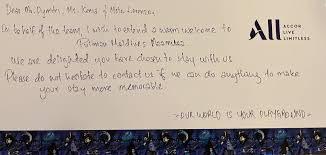 Dear Mr. Dymtri, Ms. Kams & Mste Lourenson,
On behalf of the team, I wish to extend a warm welcome to
Pullman Maldives Maamutaa
We are delighted you have chosen to stay with us
Please do not hesitate to contact us if we can do anything to make
your stay more memorable.
OUR WORLD IS YOUR PLAYGROUND
ALL
ACCOR
LIVE
LIMITLESS